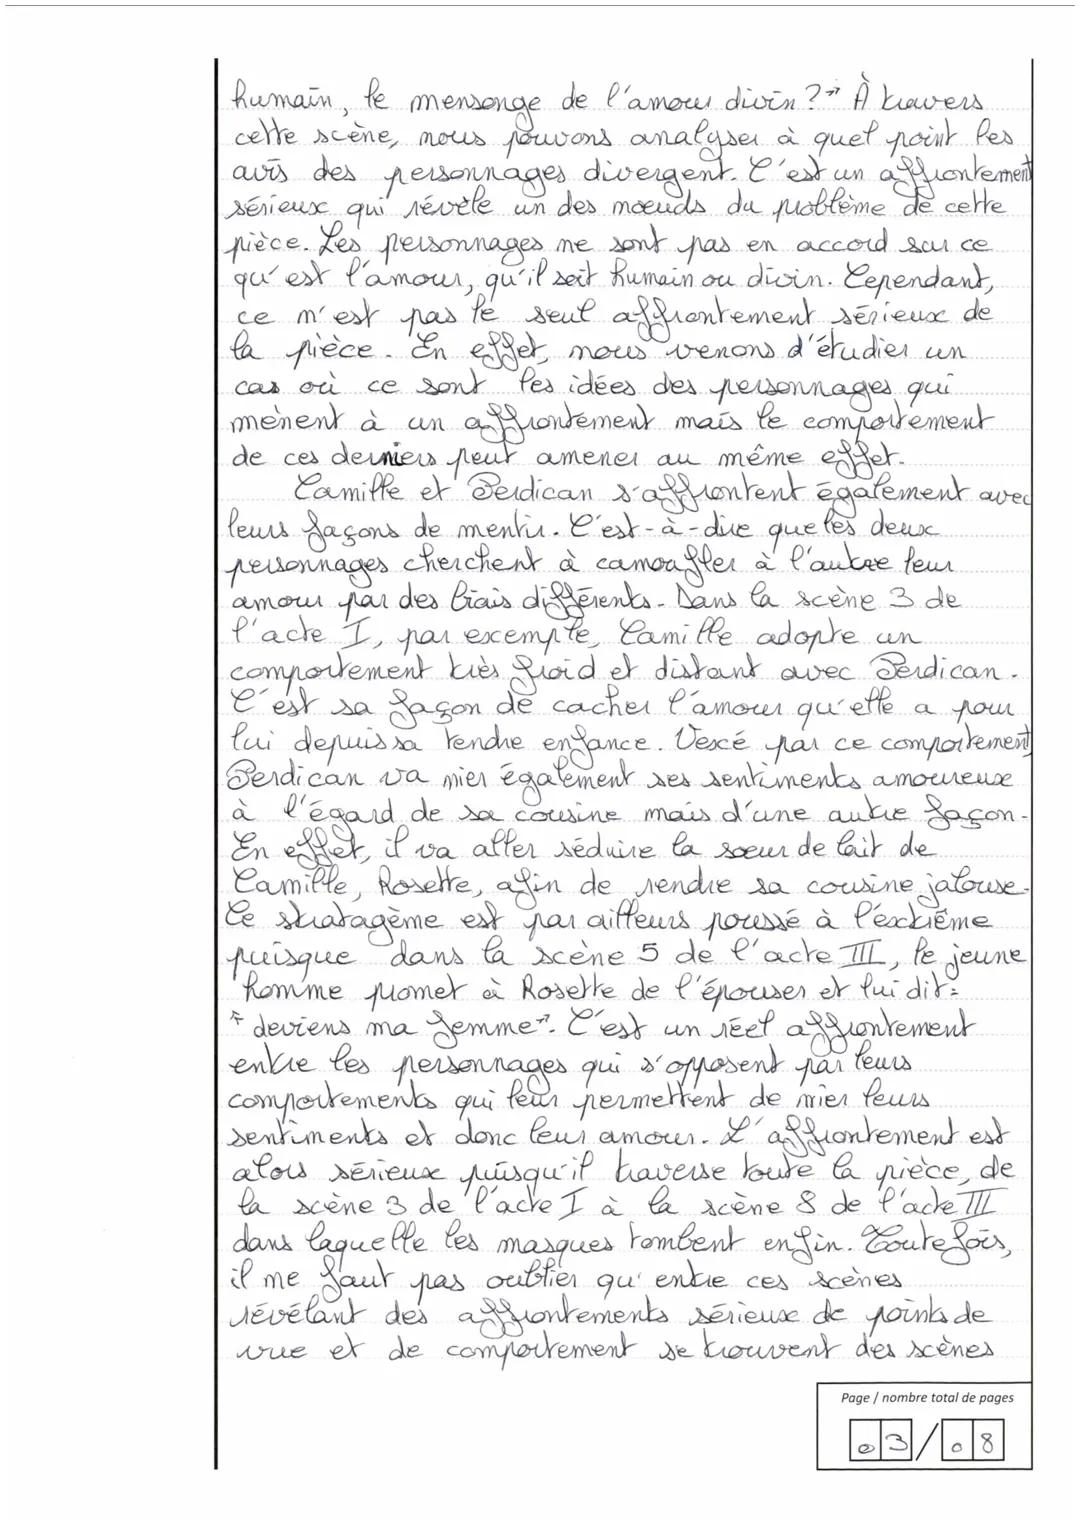 humain, le mensonge de l'amour divin ?" À travers
cette scène, nous pouvons analyser à quel point les
avis des personnages divergent. C'est un affrontement
sérieux qui révèle un des nœuds du problème de cette
pièce. Les personnages ne sont pas en accord sur ce
qu'est l'amour, qu'il soit humain ou divin. Cependant,
ce n'est pas le seul affrontement sérieux de
la pièce. En effet, nous venons d'étudier un
cas où ce sont les idées des personnages qui
mènent à un affrontement mais le comportement
de ces derniers peut amener au même effet.
Camille et Perdican s'affrontent également avec
leurs façons de mentir. C'est-à-dire que les deux
personnages cherchent à camoufler à l'autre leur
amour par des biais différents. Dans la scène 3 de
l'acte I, par exemple, Camille adopte un
comportement très froid et distant avec Perdican.
C'est sa façon de cacher l'amour qu'elle a pour
lui depuis sa tendre enfance. Vexé par ce comportement
Perdican va nier également ses sentiments amoureux
à l'égard de sa cousine mais d'une autre façon.
En effet, il va aller séduire la sœur de lait de
Camille, Rosette, afin de rendre sa cousine jalouse.
Ce stratagème est par ailleurs poussé à l'éxtrême
puisque dans la scène 5 de l'acte III, le jeune
homme promet à Rosette de l'épouser et lui dit :
" deviens ma femme". C'est un réel affrontement
entre les personnages qui s'opposent par leurs
comportements qui leur permettent de nier leurs
sentiments et donc leur amour. L'affrontement est
alors sérieux puisqu'il traverse toute la pièce, de
la scène 3 de l'acte I à la scène 8 de l'acte III
dans laquelle les masques tombent enfin. Toutefois,
il ne faut pas oublier qu'entre ces scènes
révélant des affrontements sérieux de points de
vue et de comportement se trouvent des scènes
Page / nombre total de pages
03/08